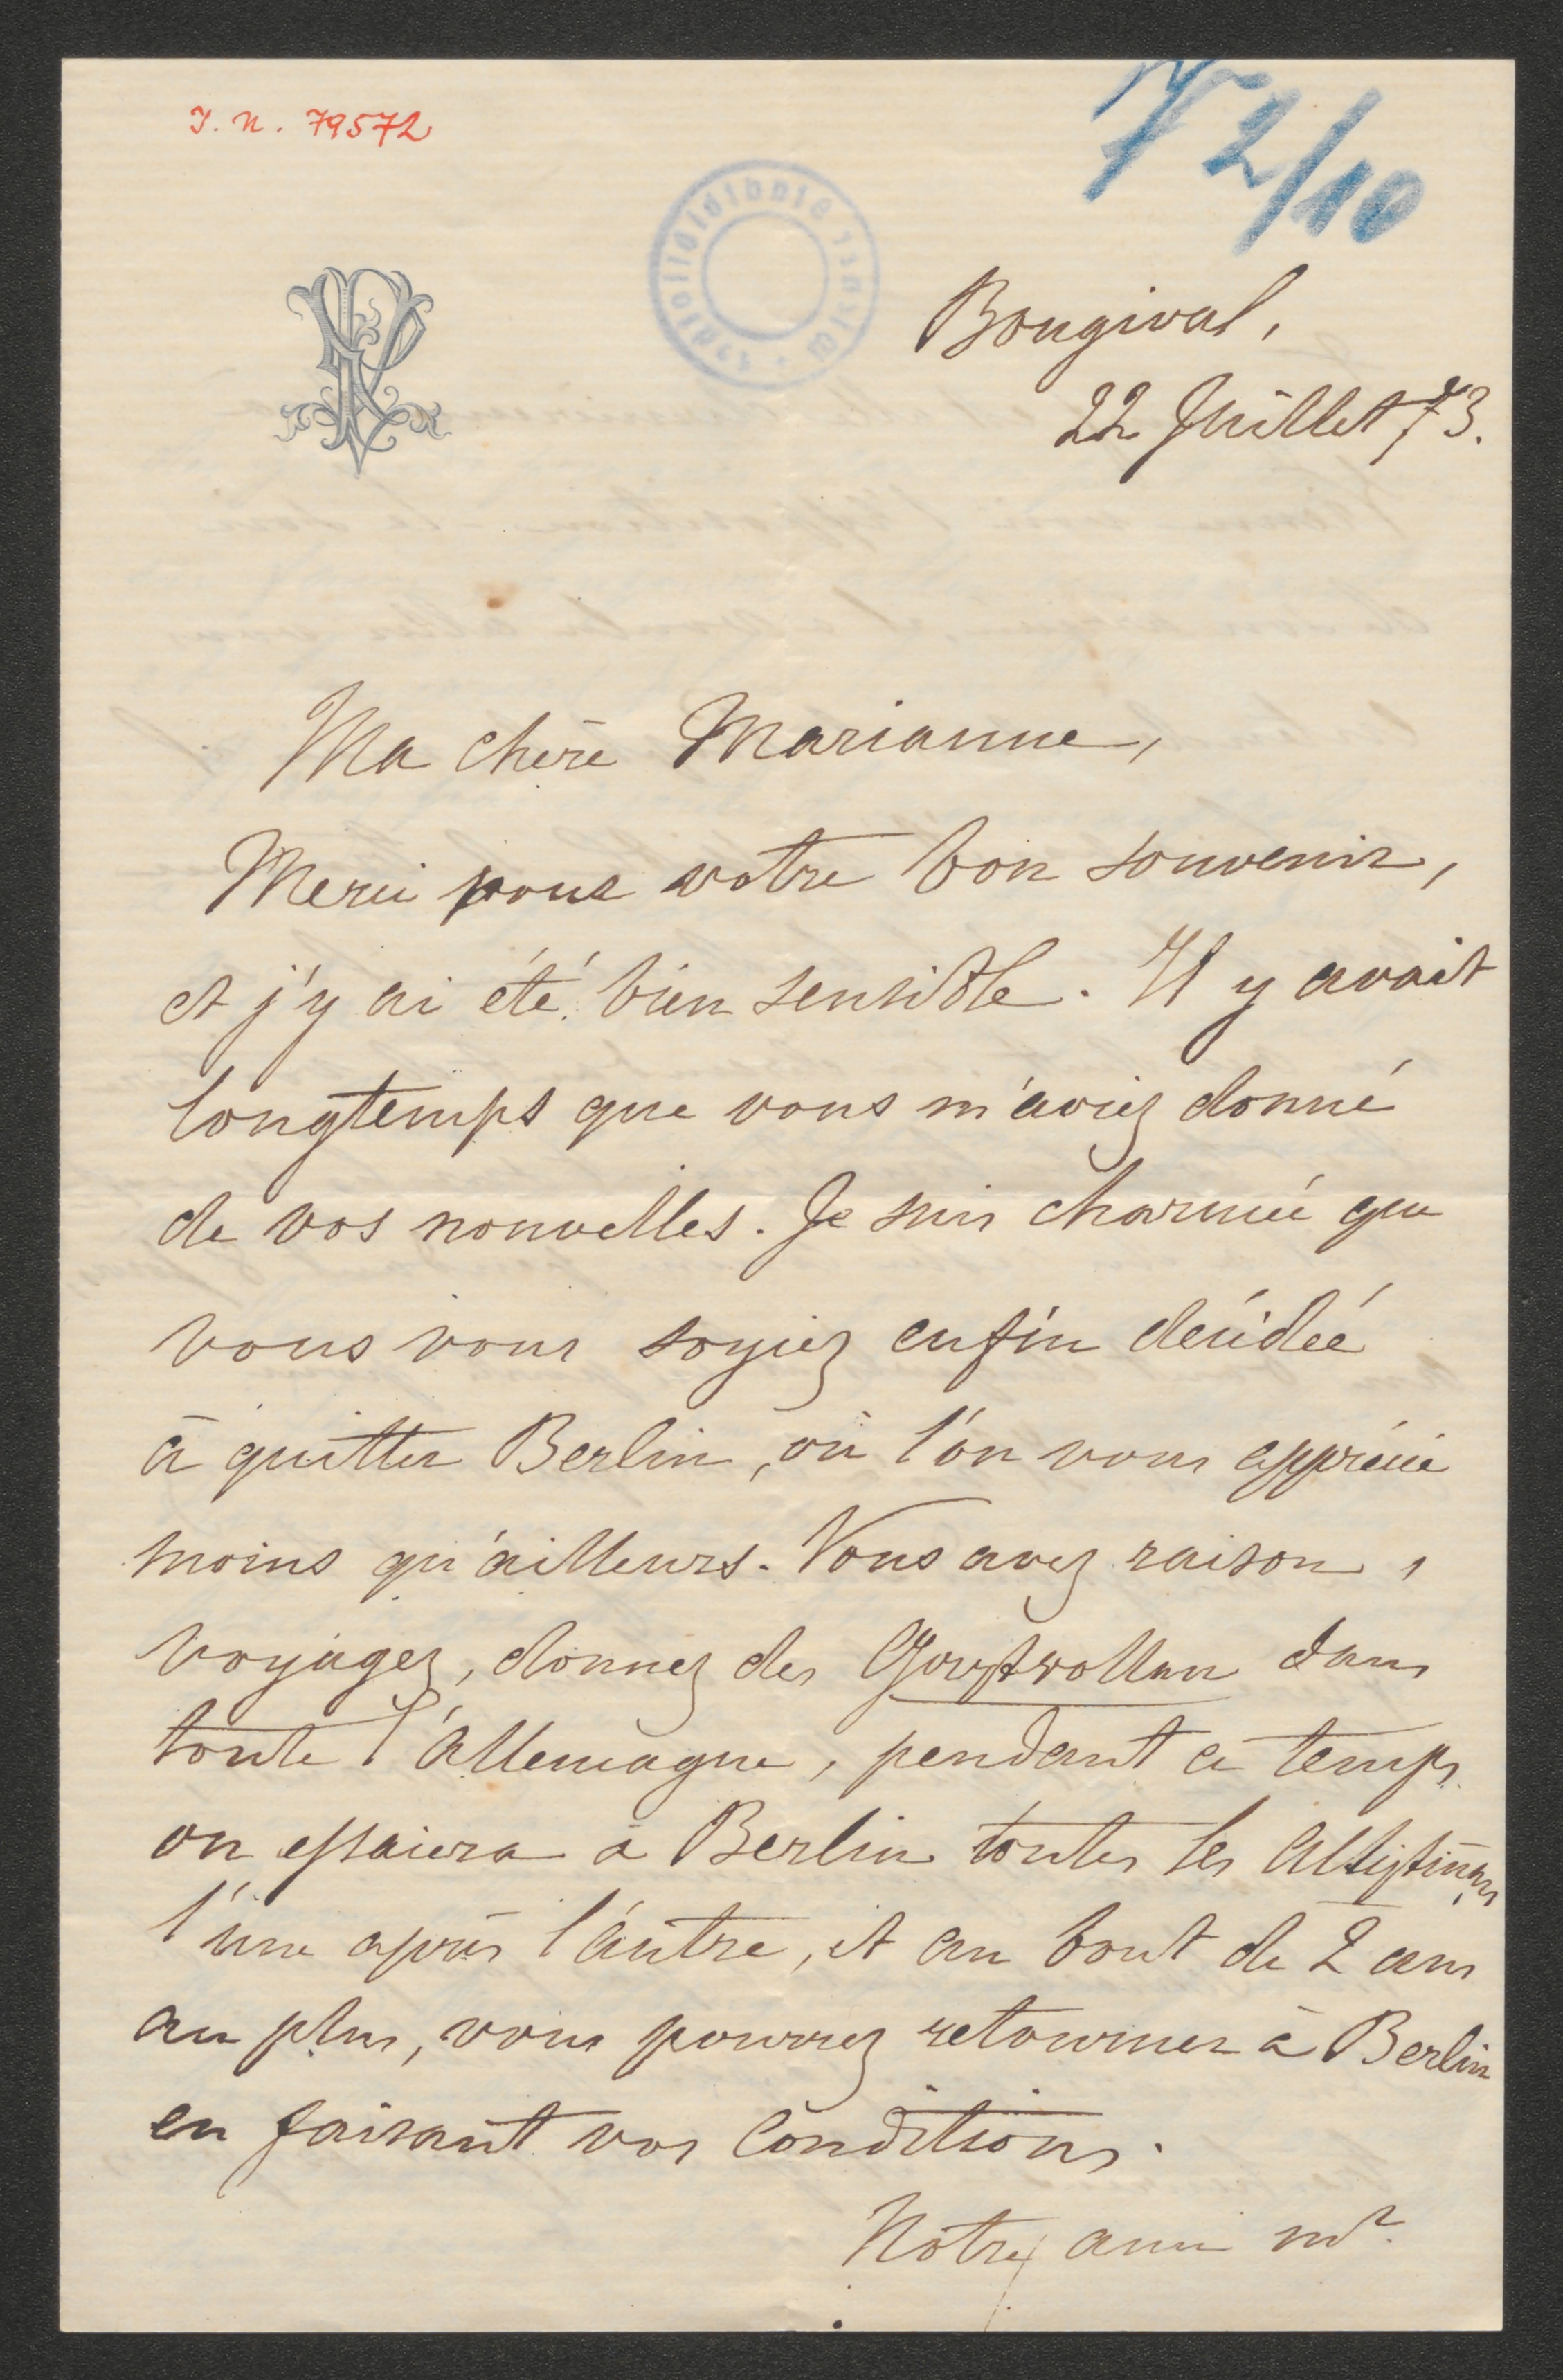 I. N. 79572
72/10
Bougival,
22 Juillet 73.
Ma chère Marianne,
Merci pour votre bon souvenir,
et j'y ai été bien sensible. Il y avait
longtemps que vous m'aviez donné
de vos nouvelles. Je suis charmée que
vous vous soyiez enfin décidée
à quitter Berlin, où l'on vous apprécie
moins qu'ailleurs. Vous avez raison,
voyagez, donnez des Gastrollen dans
toute l'Allemagne, pendant ce temps
on essaiera à Berlin toutes les Altistinnen
l'une après l'autre, et au bout de 2 ans
au plus, vous pourrez retourner à Berlin
en faisant vos conditions.
Notre ami Mr.